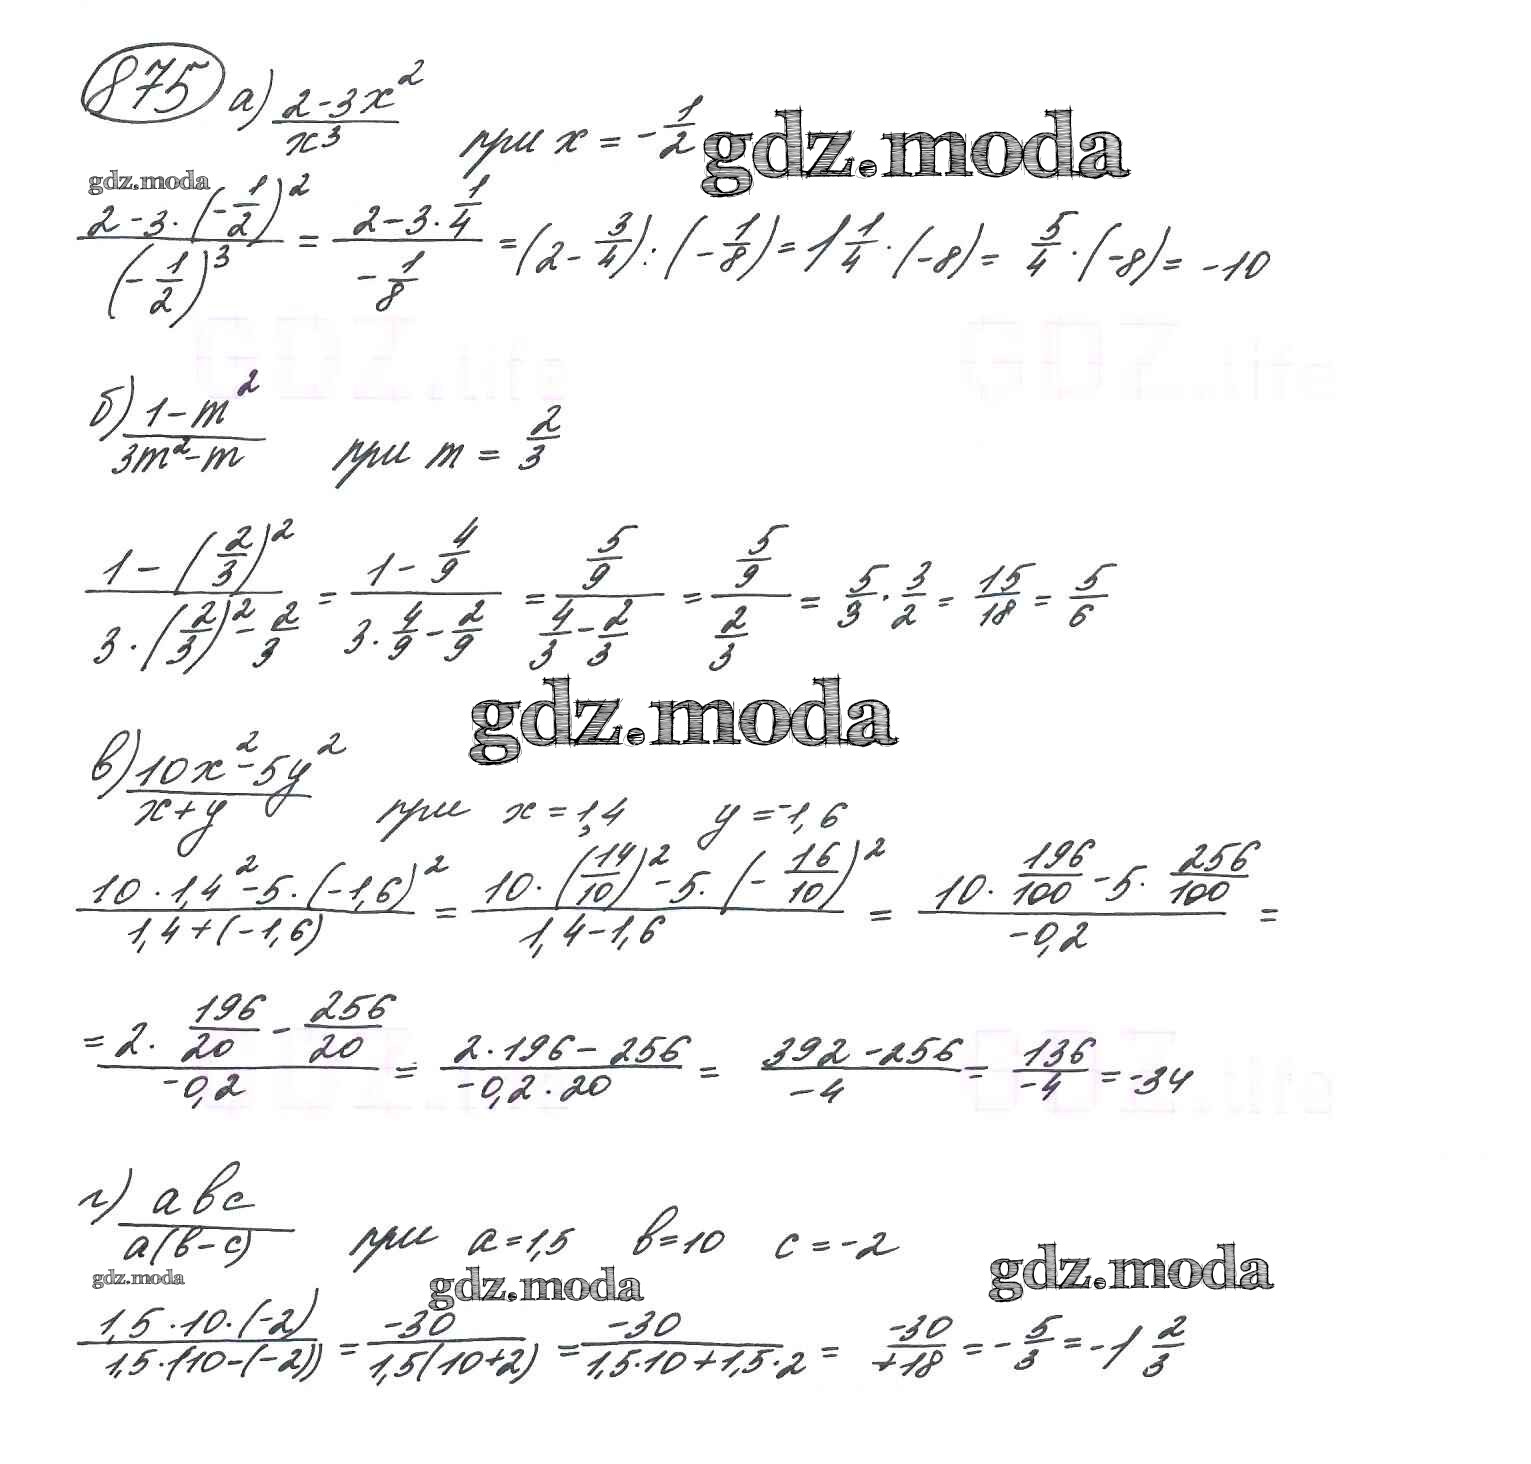 875 а) (2-3x²)/x³ при x = -1/2 gdz.moda
gdz.moda
(2-3·(-1/2)²)/(-1/2)³ = (2-3·1/4)/(-1/8) = (2-3/4):(-1/8) = 1 1/4·(-8) = 5/4·(-8) = -10
GDZ.life GDZ.life
б) (1-m²)/(3m²-m) при m = 2/3
(1-(2/3)²)/(3·(2/3)²-2/3) = (1-4/9)/(3·4/9-2/9) = (5/9)/(4/3-2/3) = (5/9)/(2/3) = 5/3·3/2 = 15/18 = 5/6
gdz.moda
в) (10x²-5y²)/(x+y) при x=1,4 y=-1,6
(10·1,4²-5·(-1,6)²)/(1,4+(-1,6)) = (10·(14/10)²-5·(-16/10)²)/(1,4-1,6) = (10·196/100-5·256/100)/(-0,2) =
= (2·196/20-256/20)/(-0,2) = (2·196-256)/(-0,2·20) = (392-256)/(-4) = 136/(-4) = -34
GDZ.life GDZ.life
г) авс/(а(в-с)) при а=1,5 в=10 с=-2
gdz.moda gdz.moda gdz.moda
(1,5·10·(-2))/(1,5·(10-(-2))) = -30/(1,5(10+2)) = -30/(1,5·10+1,5·2) = -30/(+18) = -5/3 = -1 2/3